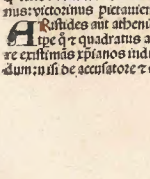 nus: victorinus pictauien
ARistides aut atheni
tpe q̃ ⁊ quadratus a
re existimãs xp̃ianos ind
dum: nisi de accusatore ⁊